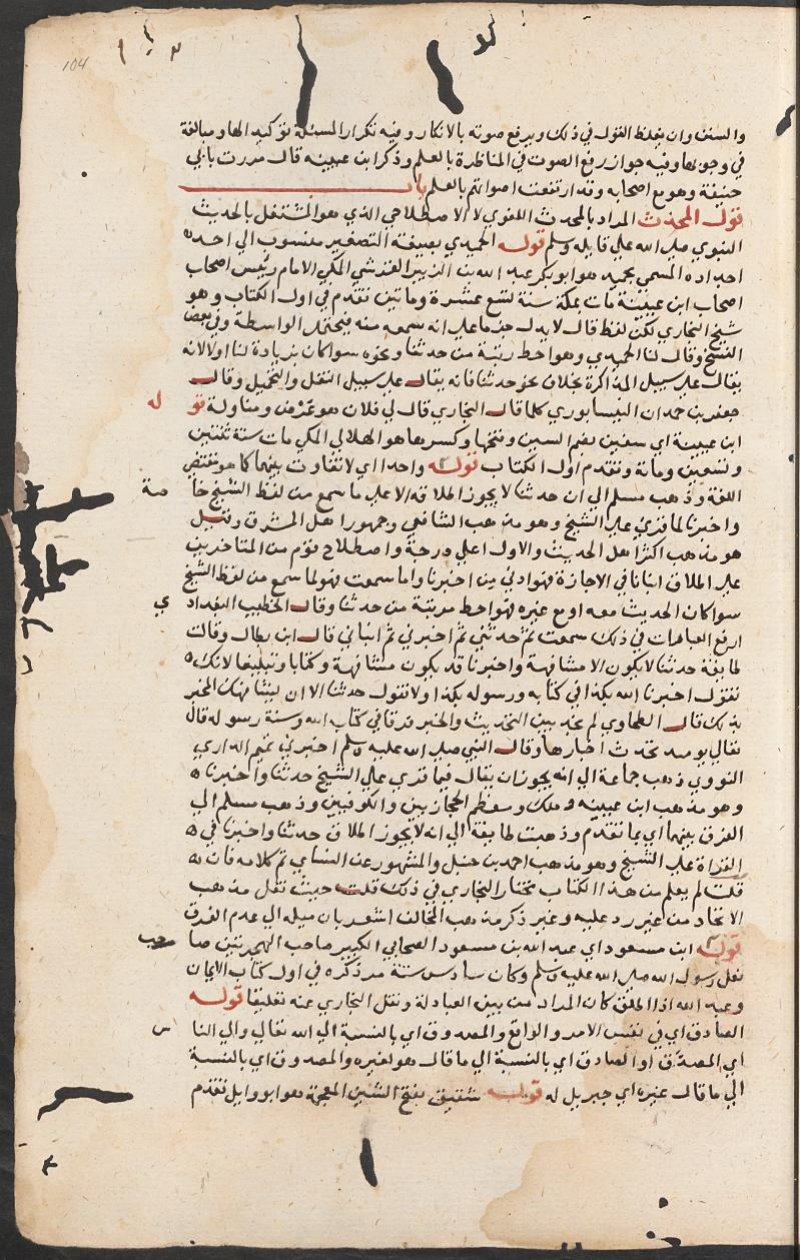 104
والسنن وان يغلظ القول في ذلك ويرفع صوته بالانكار وفيه تكرار المسئلة توكيد الها ومبالغة
في وجوبها وفيه جواز رفع الصوت في المناظرة بالعلم وذكر ابن عيينه قال مررت بابي
حنيفة وهو مع اصحابه وقد ارتفعت اصواتهم بالعلم باب
قول المحدث المراد بالمحدث اللغوي لا الاصطلاحي الذي هو المشتغل بالحديث
النبوي صلى الله على قايله وسلم قوله الحميدي بصيغة التصغير منسوب الى احد
اجداده المسمي بحميد هو ابو بكر عبد الله بن الزبير القرشي المكي الامام رئيس اصحاب
اصحاب ابن عيينة مات بمكة سنة تسع عشرة وماتين تقدم في اول الكتاب وهو
شيخ البخاري لكن لفظ قال لا يدل جزما على انه سمعه منه فيحتمل الواسطة وفي بعض
النسخ وقال لنا الحميدي وهو احط رتبة من حدثنا ونحوه سوا كان بزيادة لنا اولا لانه
يقال على سبيل المذاكرة بخلاف نحو حدثنا فانه يقال على سبيل النقل والتحمل وقال
جعفر بن حمدان النيسابوري كلما قال البخاري قال لي فلان هو عرض ومناولة قو له
ابن عيينة اي سفين بضم السين وفتحها وكسرها هو الهلالي المكي مات سنة ثمتين
وتسعين ومائة وتقدم اول الكتاب قوله واحدا اي لا تفاوت بينهما كما هو مقتضى
اللغة وذهب مسلم الى ان حدثنا لا يجوز اطلاقه الا على ما سمع من لفظ الشيخ خا صة
واخبرنا لما قري على الشيخ وهو مذهب الشافعي وجمهور اهل المشرق وقيل
هو مذهب اكثر اهل الحديث والاول اعلى درجة واصطلاح قوم من المتاخرين
على اطلاق انبانا في الاجازة فهو ادنى من اخبرنا واما سمعت فهو لما سمع من لفظ الشيخ
سوا كان الحديث معه او مع غيره فهو احط مرتبة من حدثنا وقال الخطيب البغداد ي
ارفع العبارات في ذلك سمعت ثم حدثني ثم اخبرني ثم انباني قال ابن بطال وقالت
طايفة حدثنا لا يكون الا مشافهة واخبرنا قد يكون مشافهة وكتابا وتبليغا لانك
تقول اخبرنا الله بكذا في كتابه ورسوله بكذا ولا تقول حدثنا الا ان يشافهك المخبر
بذلك قال الطحاوي لم نجد بين التحديث والخبر فرقا في كتاب الله وسنة رسوله قال
تعالى يومئذ تحدث اخبارها وقال النبي صلى الله عليه وسلم اخبرني تميم الداري
النووي ذهب جماعة الى انه يجوز ان يقال فيما قري على الشيخ حدثنا واخبرنا
وهو مذهب ابن عيينه وملك ومعظم الحجازيين والكوفيين وذهب مسلم الى
الفرق بينهما اي بما تقدم وذهبت طايفة الى انه لا يجوز اطلاق حدثنا واخبرنا في
القراة على الشيخ وهو مذهب احمد بن حنبل والمشهور عن النساي تم كلامه فان
قلت لم يعلم من هذا الكتاب مختار البخاري في ذلك قلت حيث نقل مذهب
الاتحاد من غير رد عليه وغير ذكر مذهب المخالف اشعر بان ميله الى عدم الفرق
قوله ابن مسعود اي عبد الله بن مسعود الصحابي الكبير صاحب الهجرتين صا حب
نعل رسول الله صلى الله عليه وسلم وكان سادس ستة مر ذكره في اول كتاب الايمان
وعبد الله اذا اطلق كان المراد من بين العبادلة ونقل البخاري عنه تعليقا قوله
الصادق اي في نفس الامر والواقع والمصدوق اي بالنسبة الى الله تعالى والى النا س
اي المصدق او الصادق اي بالنسبة الى ما قال هو لغيره والمصدوق اي بالنسبة
الى ما قال غيره اي جبريل له قوله شقيق بفتح الشين المعجمة هو ابو وايل تقدم